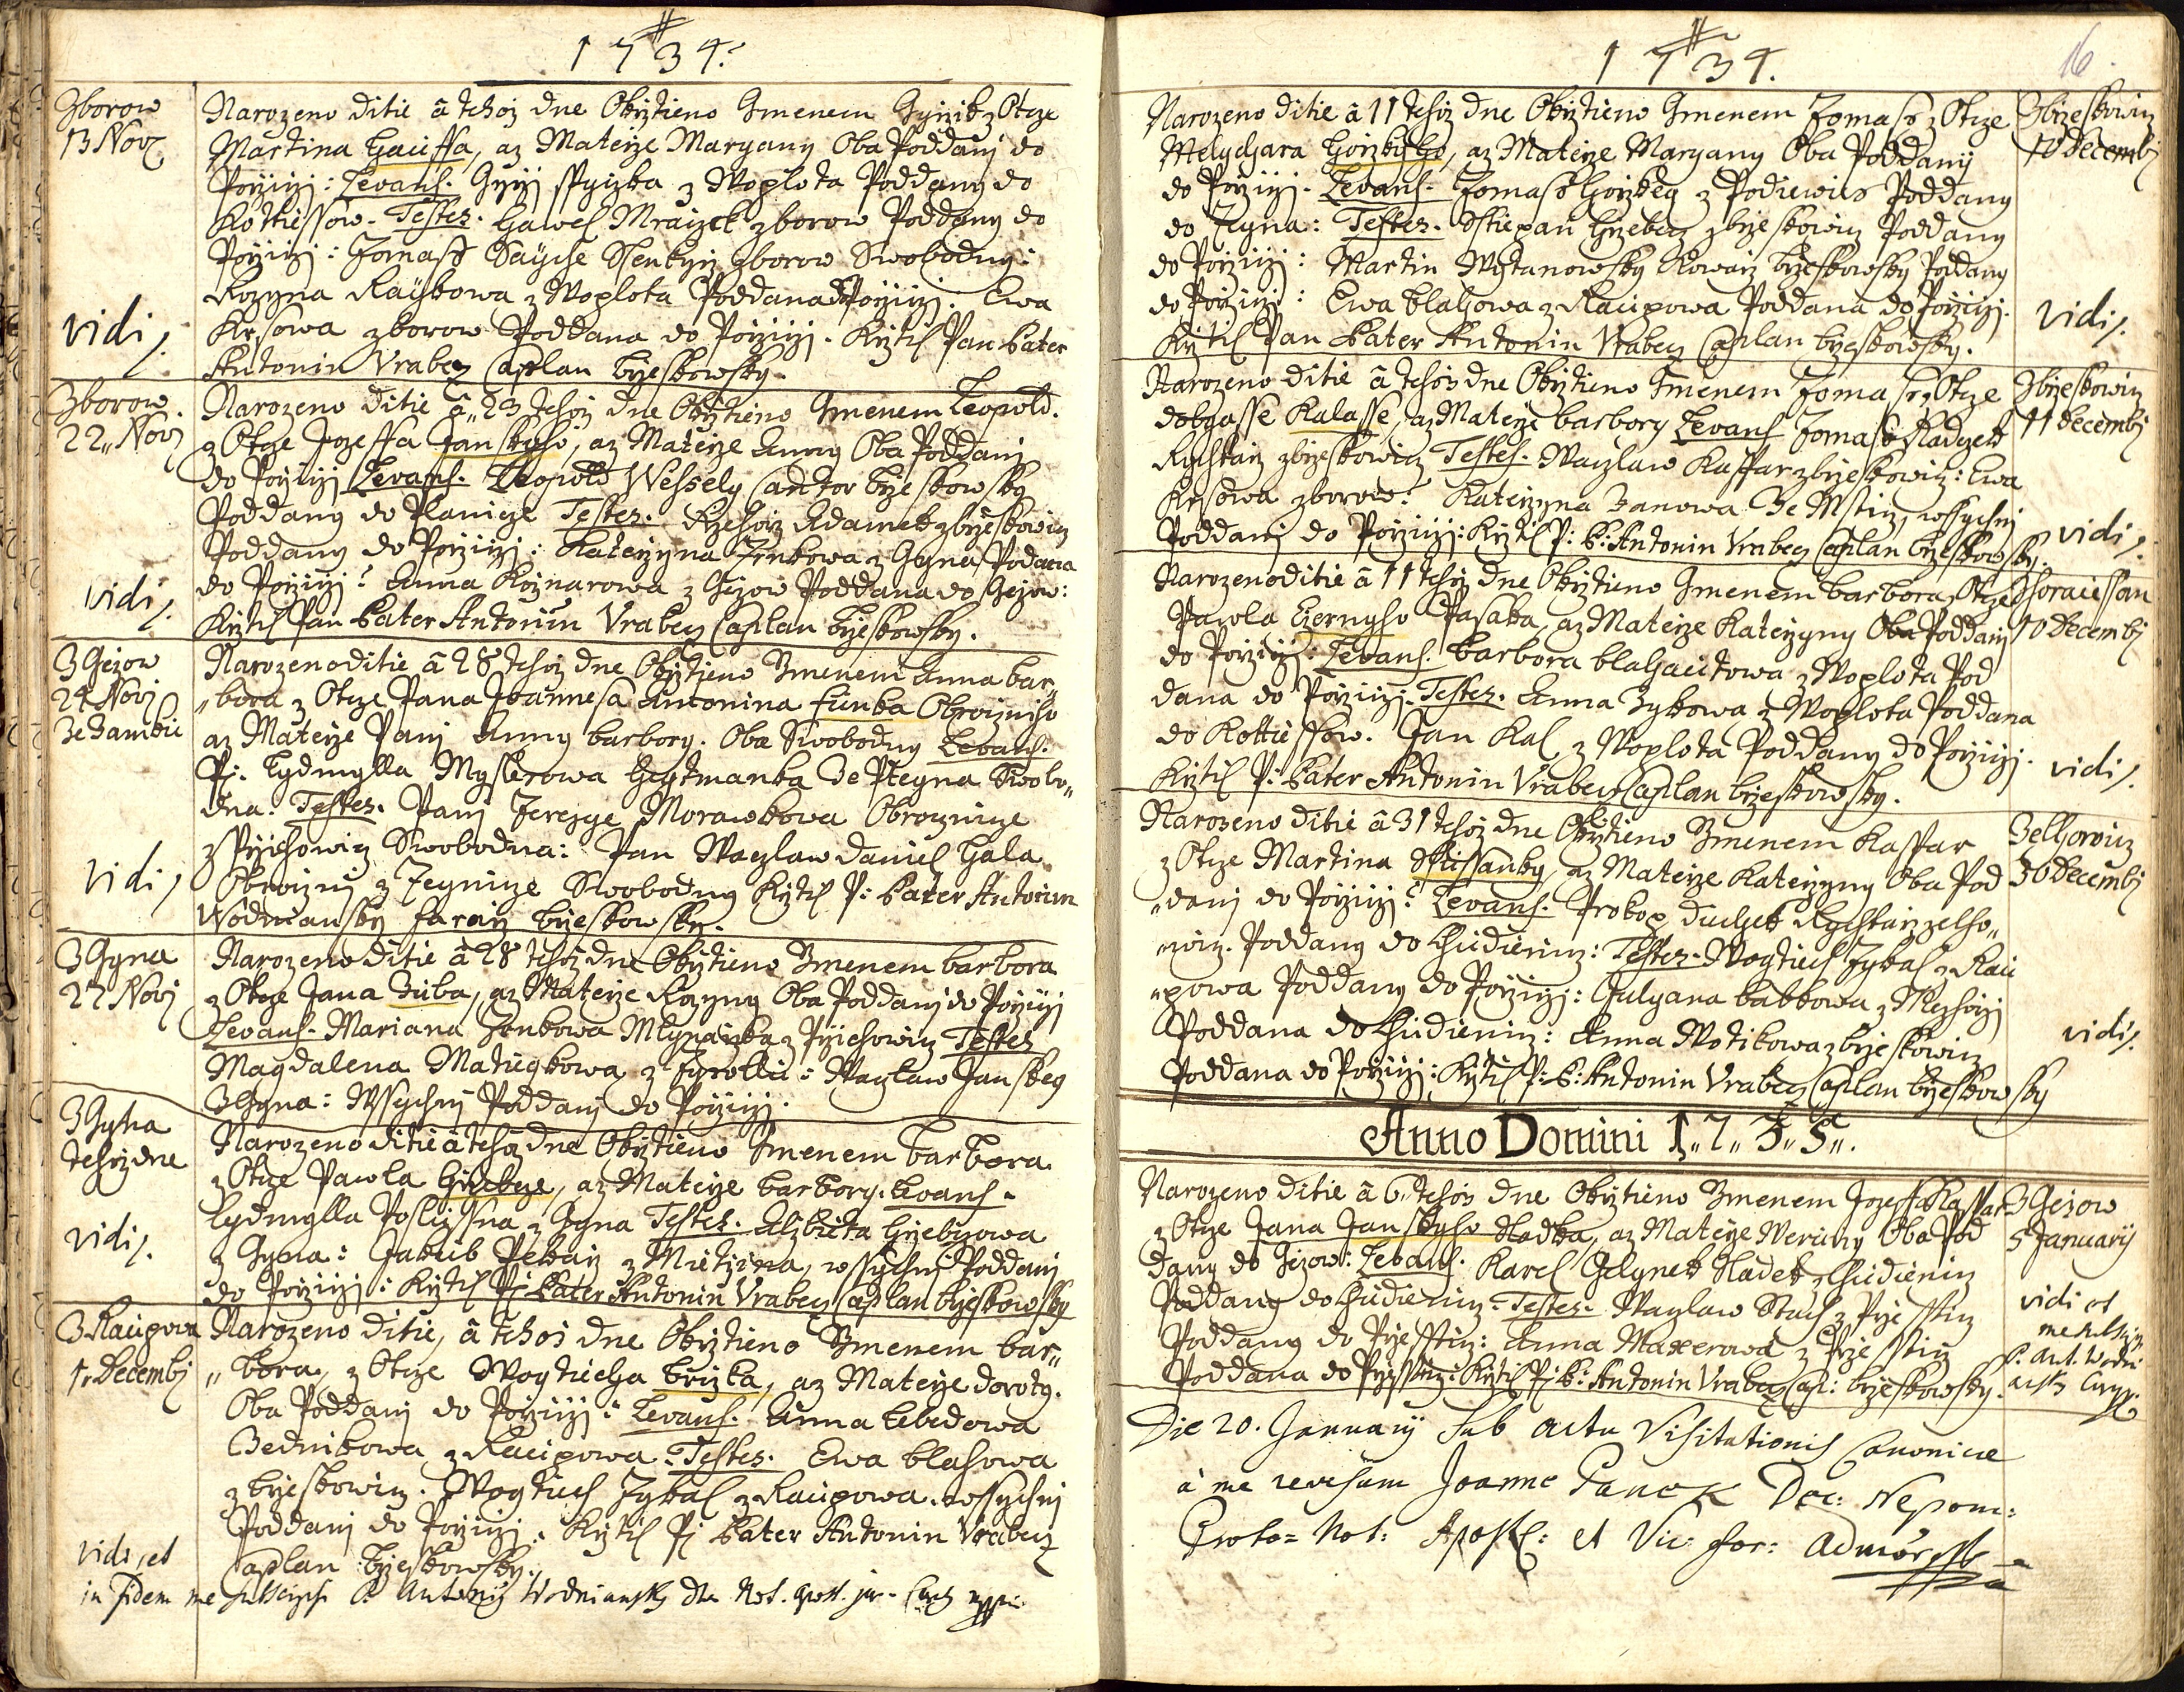 1734.
Zborow
13 Nov
Narozeno ditie ã tehoz dne Okrztieno Gmenem Gyrzik z Otcze
Martina Hausfa, az Materze Maryany Oba Poddanj do
Porziczj: Levans. Gyrzj z Woplota Poddany do
Kottiessow. Testes. Hawel Mraczek zborow Poddany do
Porziczj: Tomass Swobodny:
Rozyna Rayskowa z Woplota Poddana do Porziczj. Ewa
Krsowa zborow Poddana do Porziczj. Krztil Pan Pater
Antonin Vrabecz Caplan brzeskowsky.
vidi
Zborow
22 Novj
Narozeno ditie ã 23 tehoz dne Okrztieno Gmenem Leopold.
z Otcze Jozeffa Janskyho, az Materze Anny Oba Poddanj
do Porziczj Levans. Leopold Wessely Cantor brzeskowsky
Poddany do Planicze Testes. Rzehorz Adamek zbrzeskowicz
Poddany do Porziczj: Katerzyna z Gyna Poddana
do Porziczj: Anna Koznarowa z Gezow Poddana do Gezow:
Krztil Pan Pater Antonin Vrabecz Caplan brzeskowsky.
vidi
Z Gezow
24 Novj
Narozeno ditie ã 28 tehoz dne Okrztieno Gmenem Anna bar„
„bora z Otcze Pana Joannesa Antonina Funka Obrocznho
az Materze Panj Anny barbory. Oba Swobodny Levans.
P: Lydmylla Myslerowa Heytmanka Swobo„
dna. Testes. Panj Terezye Morawkowa Obrocznicze
z Prziehowicz Swobodna: Pan Waczlaw Daniel Hala
Obrocznj z Teynicze Swobodny Krztil P: Pater Antonin
Wodniansky Faraz brzeskowsky.
vidi
Z Gyna
27 Novj
Narozeno ditie ã 28 tehoz dne Okrztieno Gmenem barbora
z Otcze Jana Zuba, az Materze Rozyny Oba Poddanj do Porziczj
Levans. Mariana Mlynarzka z Prziehowicz Testes
Magdalena Mategkowa z: Waczlaw Jansky
Z Gyna: Wssychnj Poddanj do Porziczj.
Z Gyna
tehoz dne
Narozeno ditie ã tehoz dne Okrztieno Gmenem barbora.
z Otcze Pawla Hrzebcze, az Materze barbory. Levans.
Lydmylla z Gyna Testes. Alzbieta Hrzebczowa
z Gyna: Jakub Pekarz z Mietczina, wssychnj Poddanj
do Porziczj: Krztil Pj Pater Antonin Vrabecz Caplan brzeskowsky
vidi
Z Raupowa
1. Decembj
Narozeno ditie, ã tehoz dne Okrztieno Gmenem bar„
„bora, z Otcze Wogtiecha Brizka, az Materze doroty.
Oba Poddanj do Porziczj: Levans. Anna Lebedowa
Bednikowa z Raupowa. Testes. Ewa blahowa
z brzeskowicz. Wogtiech Zykal z Raupowa. wssychnj
Poddanj do Porziczj. Krztil Pj Pater Antonin Vrabecz
Caplan brzeskowsky.
vidi, et
in fidem me subscripsi P. Antonij Wodniansky Not. apost. jur. Cur.
1734.
16.
Narozeno ditie ã 11 tehoz dne Okrztieno Gmenem Tomass z Otcze
Melychara Horzkyho, az Materze Maryany Oba Poddanij
do Porziczj. Levans. Tomass Horzkey z Podiewus Poddany
do Teyna: Testes. Sstiepan Hrzebecz zbrzeskowicz Poddany
do Porziczj: Martin Wostanowsky Kowarz brzeskowsky Poddany
do Porziczj: Ewa blahowa z Raupowa Poddana do Porziczj.
Krztil Pan Pater Antonin Vrabecz Caplan brzeskowsky.
Zbrzeskowicz
10 Decembj
vidi
Narozeno ditie ã tehoz dne Okrztieno Gmenem Tomass z Otcze
dobyasse Kalasse, az Materze barbory Levans Tomass Kadlecz
Rychtarz zbrzeskowicz Testes. Waczlaw Kasspar zbrzeskowicz: Ewa
Krsowa zborow: Katerzyna Zanowa Ze Msticz, wssychnj
Poddanj do Porziczj: Krztil P: P: Antonin Vrabecz Caplan brzeskowsky.
Zbrzeskowicz
11 Decembj
vidi
Narozeno ditie ã 11 tehoz dne Okrztieno Gmenem barbora z Otcze
Pawla Czernyho Pasaka, az Materze Katerzyny Oba Poddanj
do Porziczj: Levans. barbora blahautowa z Woplota Pod
dana do Porziczj. Testes. Anna Zykowa z Woplota Poddana
do Kottiessow. Jan Kal z Woplota Poddany do Porziczj.
Krztil P: Pater Antonin Vrabecz Caplan brzeskowsky.
Z horaussan
10 Decembj
vidi
Narozeno ditie ã 31 tehoz dne Okrztieno Gmenem Kasspar
z Otcze Martina Skussanky az Materze Katerzyny Oba Pod
„danj do Porziczj: Levans. Prokop duchek Rychtarz zelho„
„wicz. Poddany do Chudienicz: Testes. Wogtiech Zykal z Rau
„powa Poddany do Porziczj: Julyana babkowa z Mezhorzj
Poddana do Chudienicz: Anna Wotikowa z brzeskowicz
Poddana do Porziczj: Krztil P: P: Antonin Vrabecz Caplan brzeskowsky
Zelhowicz
30 Decembj
vidi
Anno Domini 1„7„3„5„.
Narozeno ditie ã 6. tehoz dne Okrztieno Gmenem Jozeff Kasspar
z Otcze Jana Janskyho Sladka, az Materze Veruny Oba Pod
dany do Gezow: Levans. Karel Gelynek Sladek z Chudienicz
Poddany do Chudienicz. Testes. Waczlaw Stach z Przessticz
Poddany do Przessticz: Anna Maxerowa z Przessticz
Poddana do Przessticz: Krztil Pj P: Antonin Vrabecz Cap: brzeskowsky.
Z Gezow
5 January
vidi et
P. Ant. Wodni
ansky Cur.
Die 20. January sub actu Visitationis Canonicae
à me revisum Joanne Panek Dec: Nepom:
Proto= Not: Apost: et Vic: For: